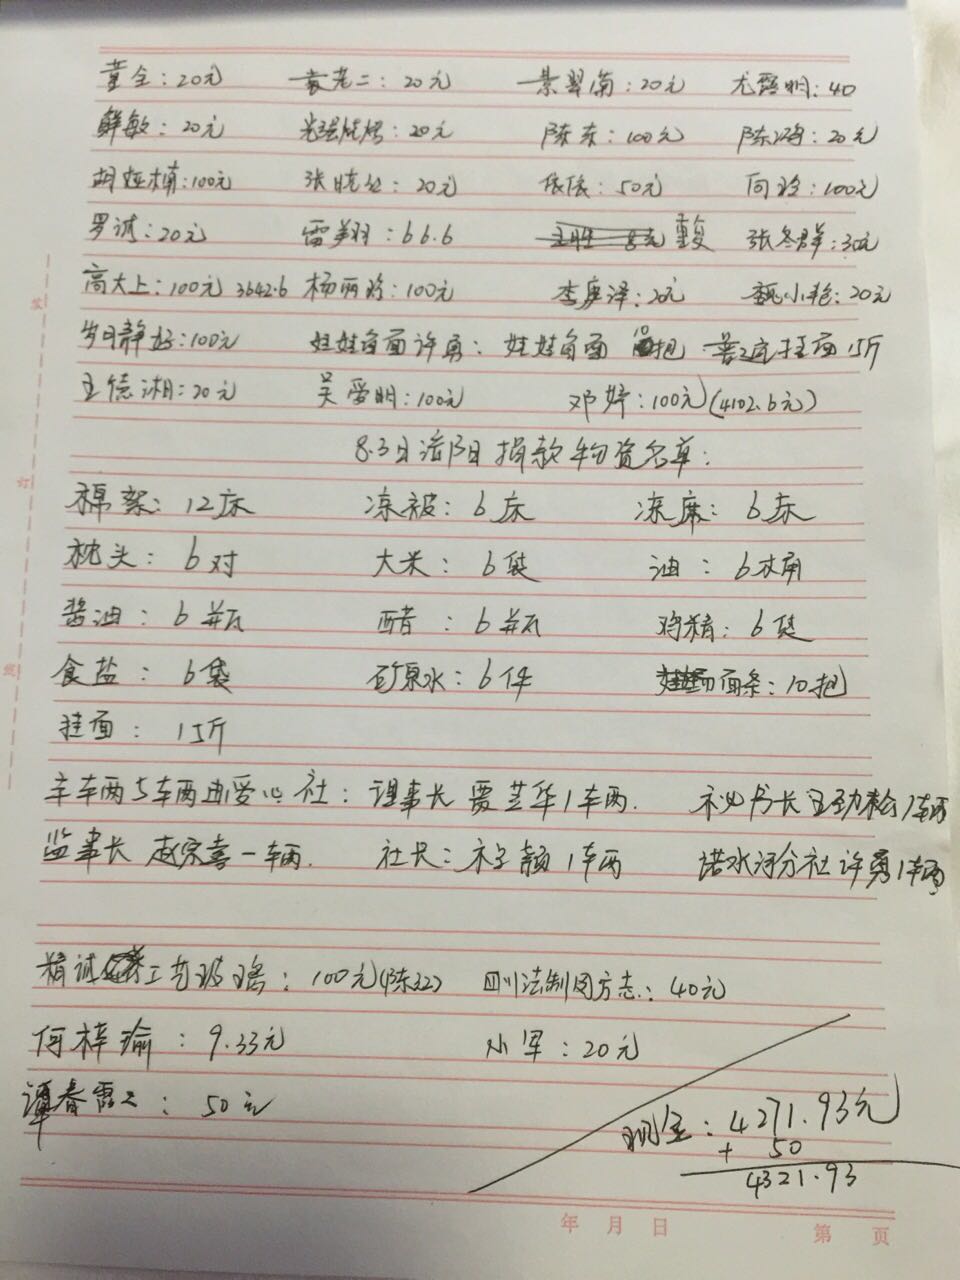 董全：20元 袁老二：20元 景翠南：20元 尤露明：40
鲜敏：20元 20元 陈东：100元 陈鸿：20元
胡娅楠：100元 张晓 ：20元 依依：50元 向玲：100元
罗诚：20元 雷翔：66.6 重复 张冬群：30元
高大上：100元 3642.6 杨丽玲：100元 李庚泽：20元 魏小艳：20元
岁月静好：100元 娃娃鱼面许勇：娃娃鱼面 10把 普通挂面15斤
王德湘：20元 吴爱明：100元 邓婷：100元(4102.6元)
8.3日涪阳捐款物资名单：
棉絮：12床 凉被：6床 凉席：6床
枕头：6对 大米：6袋 油：6桶
酱油：6瓶 醋：6瓶 鸡精：6袋
食盐：6袋 矿泉水：6件 面条：10把
挂面：15斤
车辆5车辆由爱心社：理事长 贾芝华1车辆. 秘书长 王劲松1车辆
监事长 赵宗喜一车辆. 社长： 1车辆 诺水河分社许勇1车辆
精诚 工艺玻璃：100元(陈 ) 四川法制网方志：40元
何梓瑜：9.33元 小军：20元
谭春雷 ：50元
现金：4271.93元
+ 50
4321.93
年 月 日 第 页
装
订
线